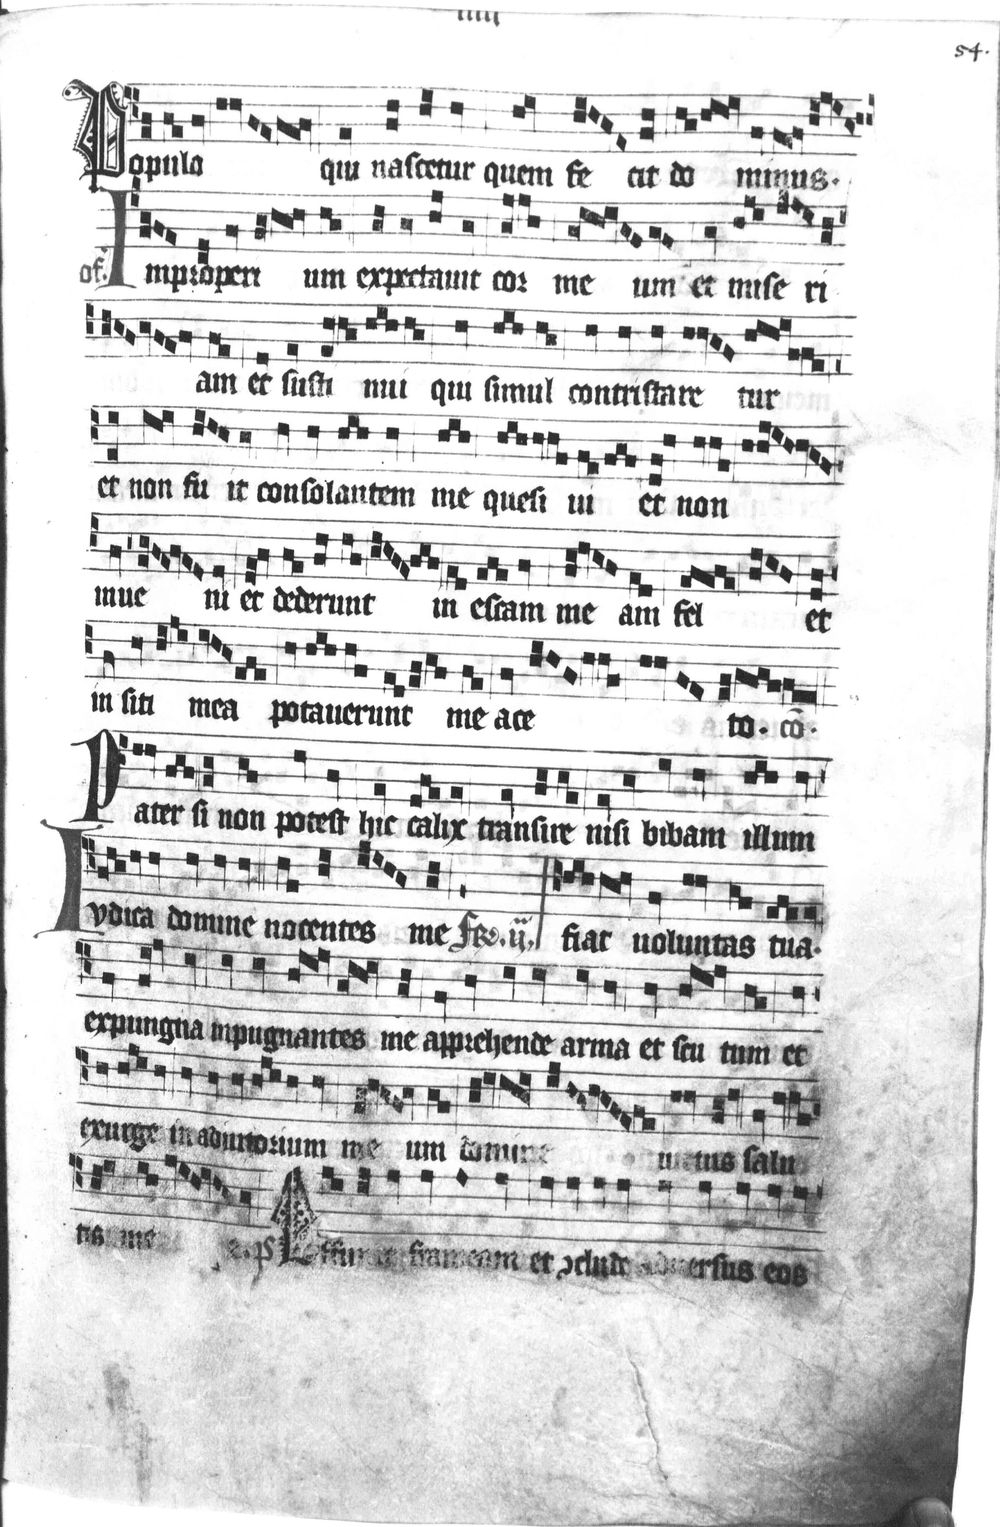 54.
Populo qui nascetur quem fe cit do minus.
of. Improperi um expectauit cor me um et mise ri
am et susti nui qui simul contristare tur
et non fu it consolantem me quesi ui et non
inue ni et dederunt in escam me am fel et
in siti mea potauerunt me ace to. cō.
Pater si non potest hic calix transire nisi bibam illum
fiat uoluntas tua.
Iudica domine nocentes me fe. ij.
expungna inpugnantes me apprehende arma et scu tum et
exurge in adiutorium me um domine uirtus salu
tis me e. ps Effunde frameam et ɔclude aduersus eos